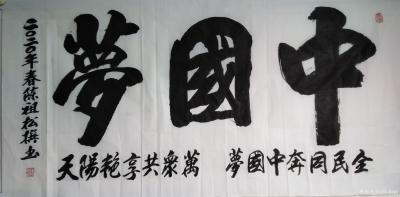 中國夢
全民同奔中國夢 萬衆共享艳陽天
二〇二〇年春陈祖松撰书